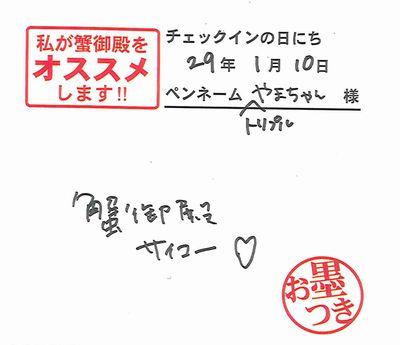 私が蟹御殿を
オススメ
します!!
チェックインの日にち
29年 1月 10日
ペンネーム やまちゃん 様
トリプル
蟹御殿
サイコー♡
お墨つき